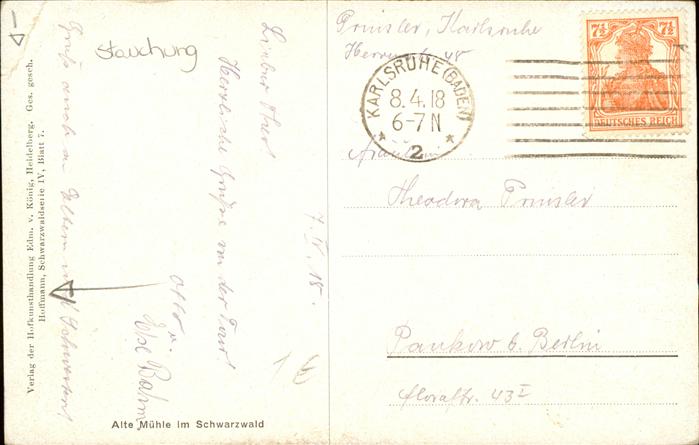 Stauchung
7.IV.18.
Herzliche Grüße von der
Otto u.
Gruß auch an Eltern u.
Verlag der Hofkunsthandlung Edm. v. König, Heidelberg. Ges. gesch.
Hoffmann, Schwarzwaldserie IV, Blatt 7.
Alte Mühle im Schwarzwald
1 €
Prinsler, Karlsruhe
Herrenstr. 48
KARLSRUHE (BADEN)
8.4.18
6-7 N
* 2 *
7½ 7½
DEUTSCHES REICH
Fräulein
Theodora Prinsler
Pankow b. Berlin
Florastr. 43 I